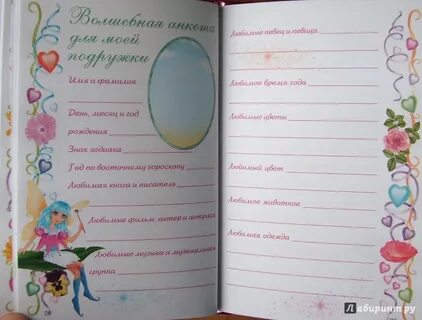 Волшебная анкета
для моей
подружки
Имя и фамилия
День, месяц и год
рождения
Знак зодиака
Год по восточному гороскопу
Любимая книга и писатель
Любимые фильм, актер и актриса
Любимые музыка и музыкальная
группа
28
Любимые певец и певица
Любимое время года
Любимые цветы
Любимый цвет
Любимое животное
Любимая одежда
Лабиринт.ру